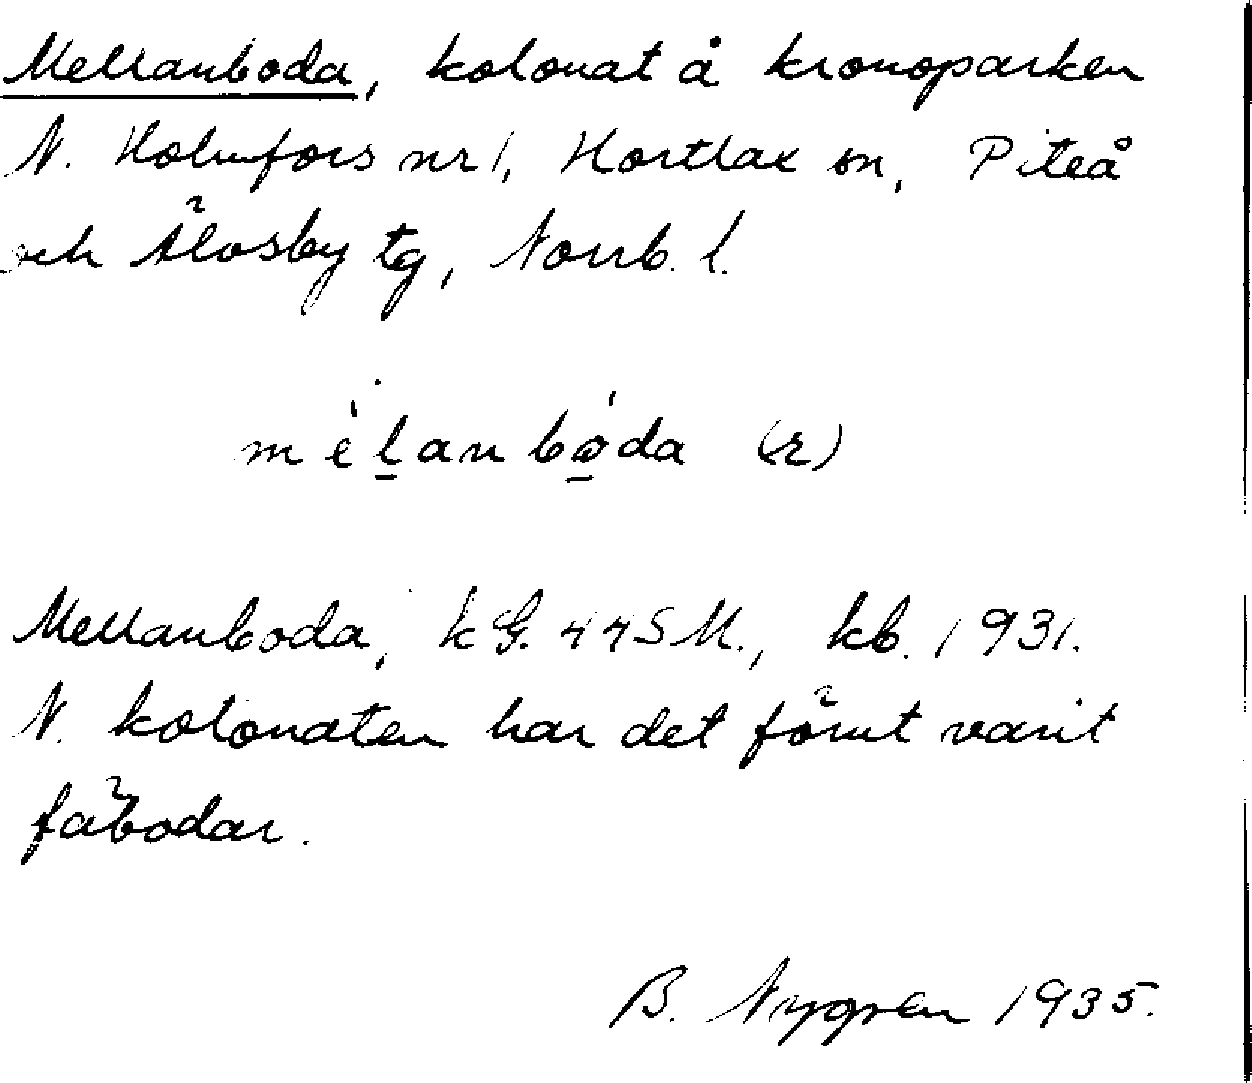 Mellanboda, kolonat å kronoparken
N. Holmfors nr 1, Hortlax sn, Piteå
och Älvsby tg, Norrb. l.
mèḻanbó̱da (r)
Mellanboda, kG. 44 SM., kb. 1931.
N. kolonaten har det förut varit
fäbodar.
B. Nygren 1935.